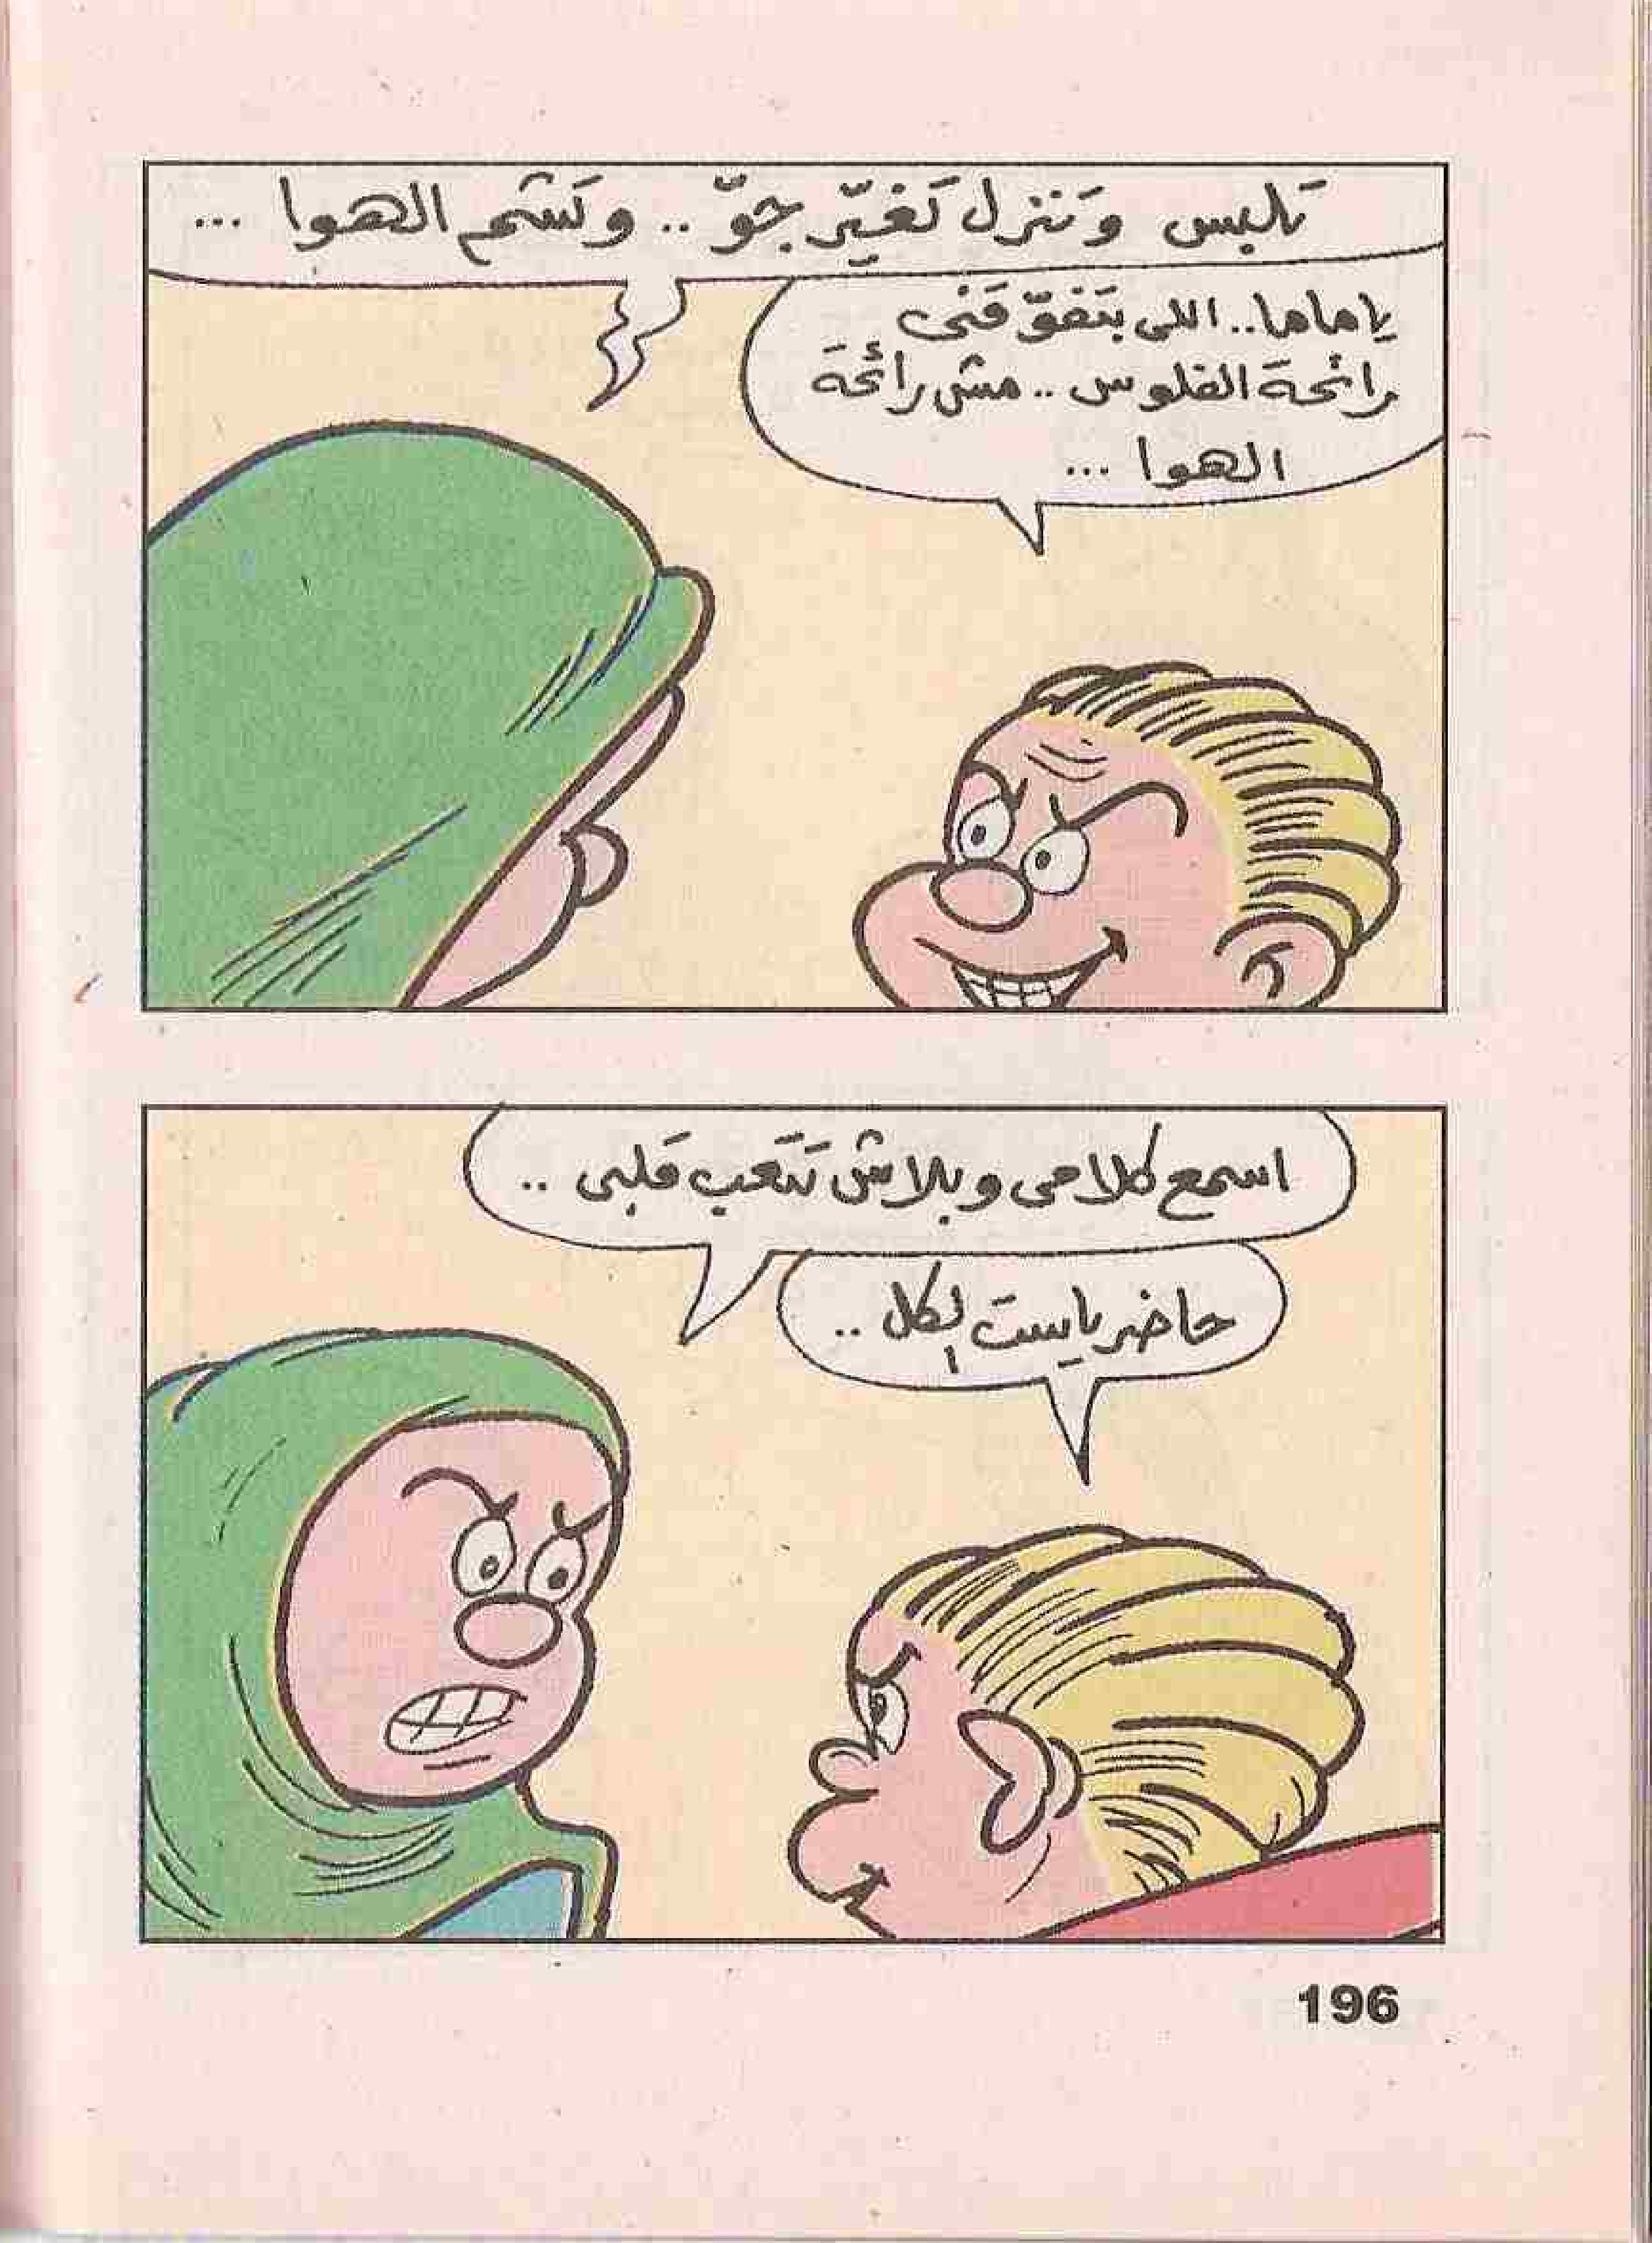 تلبس وتنزل تغيّر جوّ .. وتشم الهوا ...
يا ماما .. اللى بتفوّقنى
رائحة الفلوس .. مش رائحة
الهوا ...
اسمع كلامى وبلاش تتعب قلبى ..
حاضر يا ست الكل ..
196